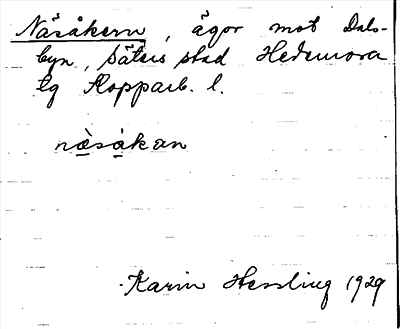 Näsåkern, ägor mot Dals-
byn, Säters stad Hedemora
tg Kopparb. l.
nä̀såkan
Karin Hessling 1929